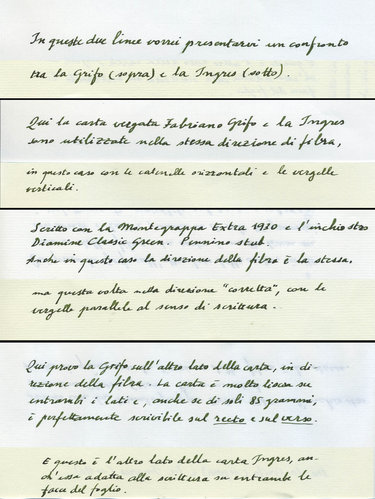 In queste due linee vorrei presentarvi un confronto
tra la Grifo (sopra) e la Ingres (sotto).
Qui la carta vergata Fabriano Grifo e la Ingres
sono utilizzate nella stessa direzione di fibra,
in questo caso con le catenelle orizzontali e le vergelle
verticali.
Scritto con la Montegrappa Extra 1930 e l'inchiostro
Diamine Classic Green. Pennino stub.
Anche in questo caso la direzione della fibra è la stessa,
ma questa volta nella direzione "corretta", con le
vergelle parallele al senso di scrittura.
Qui provo la Grifo sull'altro lato della carta, in di-
rezione della fibra. La carta è molto liscia su
entrambi i lati e, anche se di soli 85 grammi,
è perfettamente scrivibile sul recto e sul verso.
E questo è l'altro lato della carta Ingres, an-
ch'essa adatta alla scrittura su entrambe le
facce del foglio.